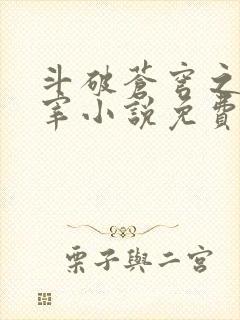 斗破蒼穹之
宰小說免費
栗子與二宮